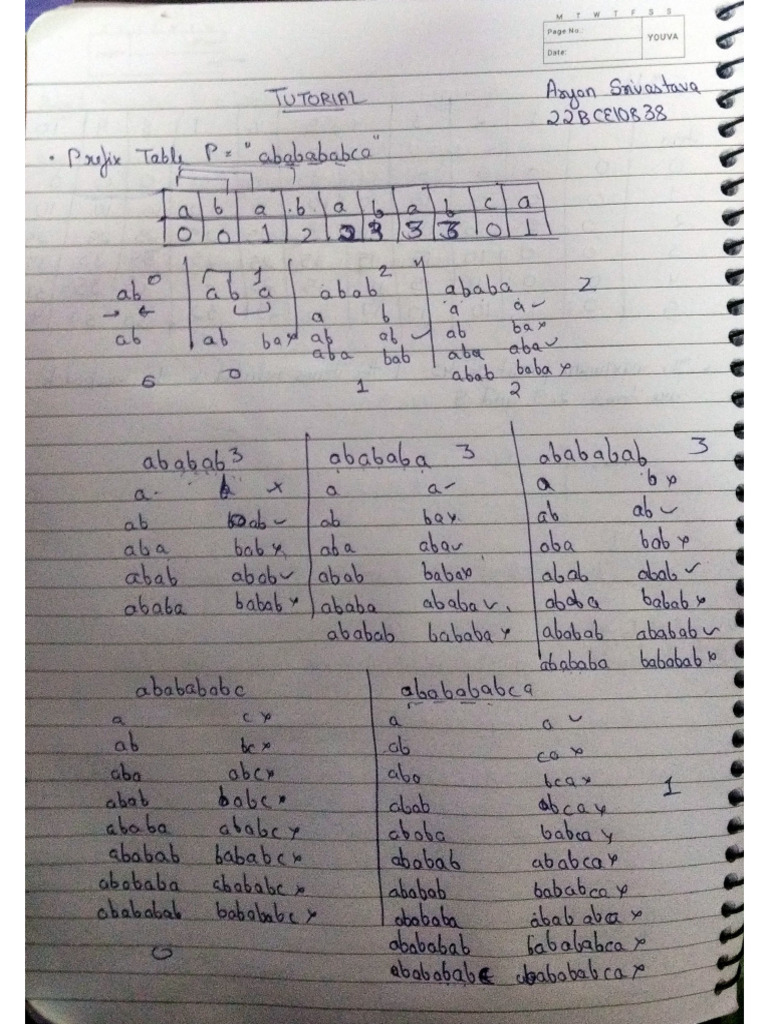 M T W T F S S
Page No.:
Date:
YOUVA
TUTORIAL
Aryan Srivastava
22BCE10838
• Prefix Table P = "abababab​ca"
a b a b a b a b c a
0 0 1 2 3 3 3 0 1
ab 0 | ab a 1 | abab 2 | ababa 2
→ ← | a b | a a ✓
ab | ab ba x | ab ab ✓ | ab ba x
aba bab | aba aba ✓
abab baba x
0 1 2
ababab 3 | abababa 3 | abababab 3
a b x | a a ✓ | a b x
ab ab ✓ | ab ba x | ab ab ✓
aba bab x | aba aba ✓ | aba bab x
abab abab ✓ | abab baba x | abab abab ✓
ababa babab x | ababa ababa ✓ | ababa babab x
ababab bababa x | ababab ababab ✓
abababa bababab x
ababababc | abababab​ca
a c x | a a ✓
ab bc x | ab ca x
aba abc x | aba bca x 1
abab babc x | abab abca x
ababa ababc x | ababa babca x
ababab bababc x | ababab ababca x
abababa abababc x | ababab bababca x
abababab babababc x | abababa abababca x
0 | abababab babababca x
abababab​c abababab​ca x